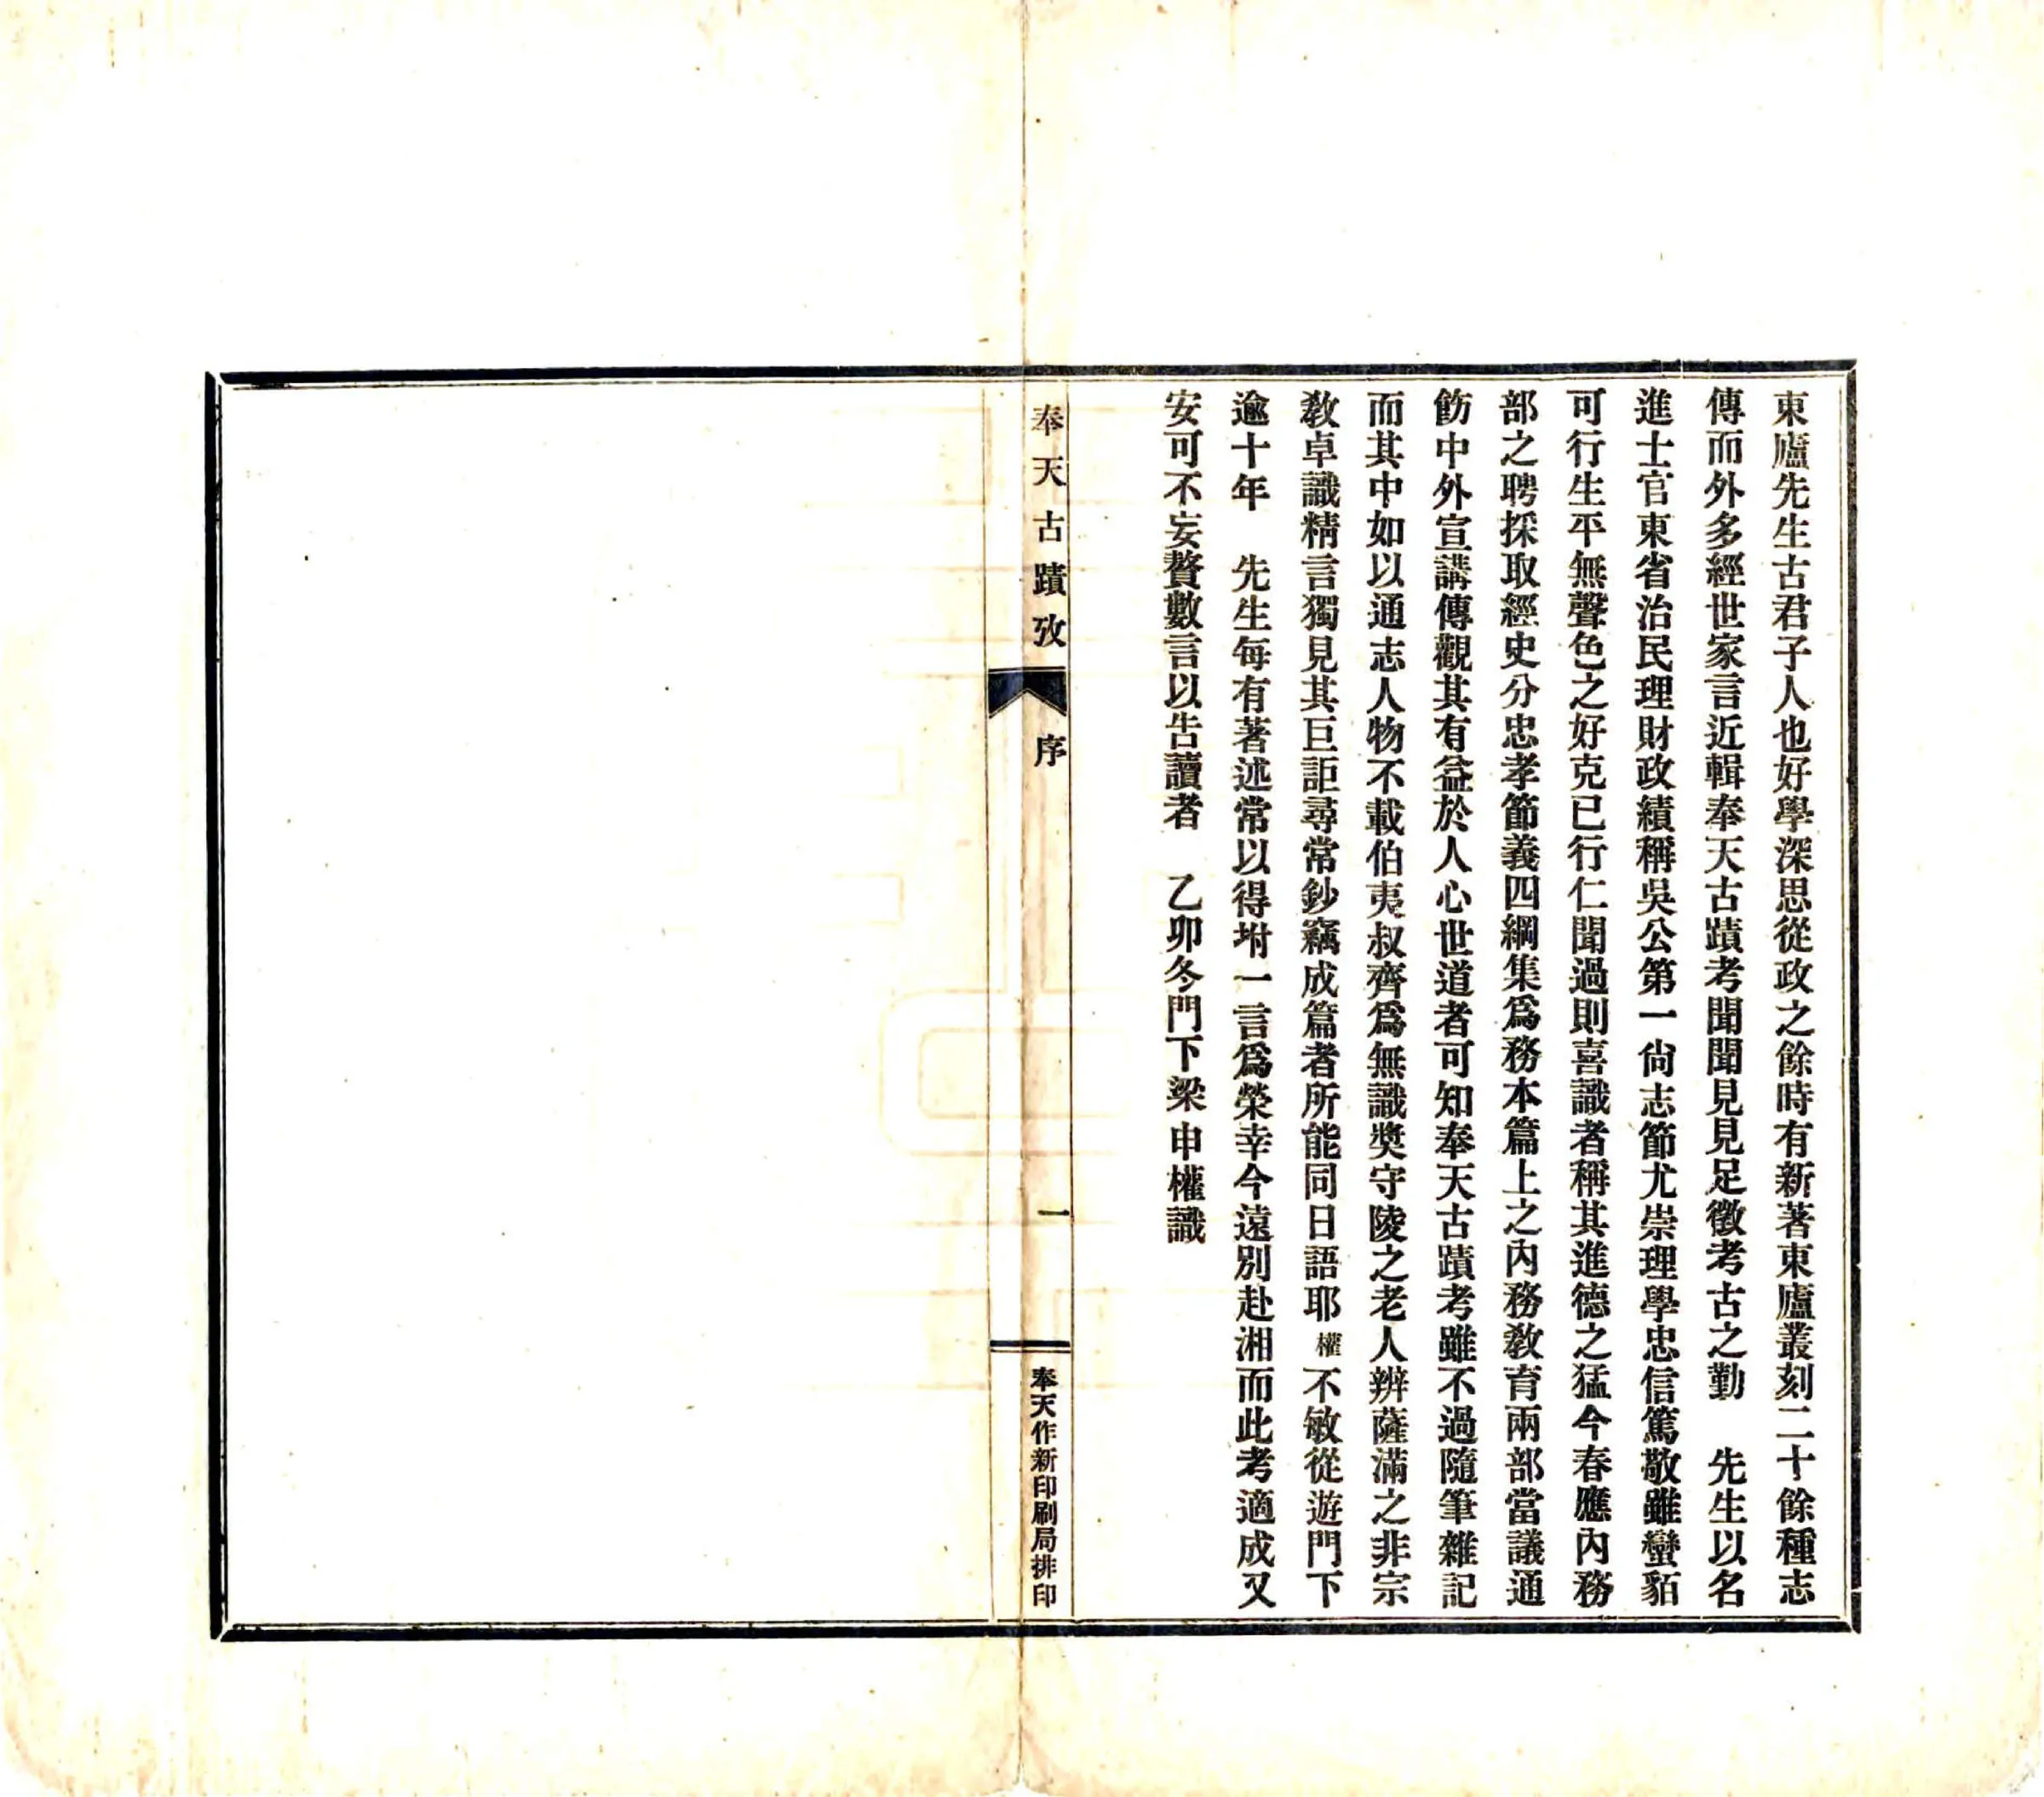 東廬先生古君子人也好學深思從政之餘時有新著東廬叢刻二十餘種志
傳而外多經世家言近輯奉天古蹟考聞聞見見足徵考古之勤　先生以名
進士官東省治民理財政績稱吳公第一尙志節尤崇理學忠信篤敬雖蠻貊
可行生平無聲色之好克已行仁聞過則喜識者稱其進德之猛今春應內務
部之聘採取經史分忠孝節義四綱集爲務本篇上之內務敎育兩部當議通
飭中外宣講傳觀其有益於人心世道者可知奉天古蹟考雖不過隨筆雜記
而其中如以通志人物不載伯夷叔齊爲無識奬守陵之老人辨薩滿之非宗
敎卓識精言獨見其巨詎尋常鈔竊成篇者所能同日語耶權不敏從遊門下
逾十年　先生每有著述常以得坿一言爲榮幸今遠別赴湘而此考適成又
安可不妄贅數言以告讀者　乙卯冬門下梁申權識
奉天古蹟攷
序
一
奉天作新印刷局排印